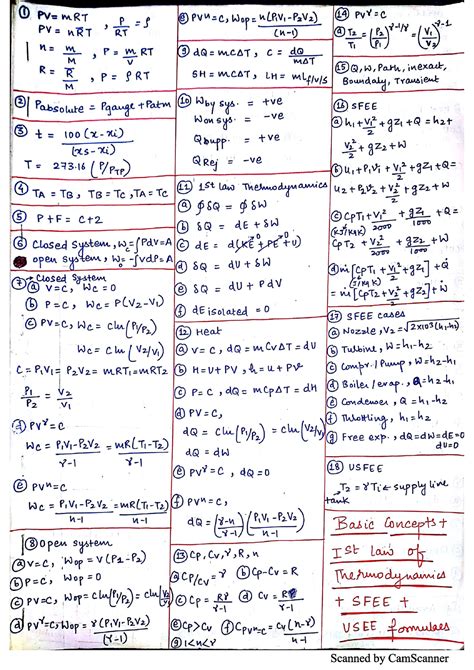 ① PV = mRT
PV = nR̄T , P/RT = ρ
n = m/M , P = m/V RT
R = R̄/M , P = ρRT
② Pabsolute = Pgauge + Patm
③ t = 100(x - xi)/(xs - xi)
T = 273.16 (P/PTP)
④ TA = TB, TB = TC, TA = TC
⑤ P + F = C + 2
⑥ Closed system, Wc = ∫PdV = A
open system, Wo = -∫vdP = A
⑦ Closed System
ⓐ V = C, Wc = 0
ⓑ P = C, Wc = P(V2 - V1)
ⓒ PV = C, Wc = C ln(P1/P2)
Wc = C ln(V2/V1)
C = P1V1 = P2V2 = mRT1 = mRT2
P1/P2 = V2/V1
ⓓ PVᵞ = C
Wc = P1V1 - P2V2/γ-1 = mR(T1 - T2)/γ-1
ⓔ PVⁿ = C
Wc = P1V1 - P2V2/n-1 = mR(T1 - T2)/n-1
⑧ Open system
ⓐ V = C, Wop = V(P1 - P2)
ⓑ P = C, Wop = 0
ⓒ PV = C, Wop = C ln(P1/P2) = C ln(V2/V1)
ⓓ PVᵞ = C, Wop = γ(P1V1 - P2V2)/γ-1
ⓔ PVⁿ = C, Wop = n(P1V1 - P2V2)/(n-1)
⑨ dQ = mCΔT, C = dQ/mΔT
SH = mCΔT, LH = mL f/v/s
⑩ Wby sys. = +ve
Won sys = -ve
Qsupp. = +ve
QRej = -ve
⑪ 1st law Thermodynamics
ⓐ ∮δQ = ∮δW
ⓑ δQ = dE + δW
ⓒ dE = d(KE→0 + PE→0 + U)
ⓓ δQ = dU + δW
ⓔ δQ = dU
ⓕ dE isolated = 0
⑫ Heat
ⓐ V = C, dQ = mCvΔT = dU
ⓑ H = U + PV, h = u + PV
ⓒ P = C, dQ = mCpΔT = dH
ⓓ PV = C,
dQ = C ln(P1/P2) = C ln(V2/V1)
dQ = dW
ⓔ PVᵞ = C, dQ = 0
ⓕ PVⁿ = C,
dQ = (γ-n/γ-1)(P1V1 - P2V2/n-1)
⑬ Cp, Cv, γ, R, n
ⓐ Cp/Cv = γ ⓑ Cp - Cv = R
ⓒ Cp = Rγ/γ-1 ⓓ Cv = R/γ-1
ⓔ Cp > Cv ⓕ CPVⁿ=C = Cv(n-γ)/n-1
ⓖ 1<n<γ
⑭ PVᵞ = C
ⓐ T2/T1 = (P2/P1)^γ-1/γ = (V1/V2)^γ-1
⑮ Q, W, Path, inexact,
Boundary, Transient
⑯ SFEE
ⓐ h1 + V1²/2 + gZ1 + Q = h2 +
V2²/2 + gZ2 + W
ⓑ u1 + P1V1 + V1²/2 + gZ1 + Q =
u2 + P2V2 + V2²/2 + gZ2 + W
ⓒ CpT1 + V1²/2000 + gZ1/1000 + Q =
(KJ/kgK)
CpT2 + V2²/2000 + gZ2/1000 + W
ⓓ ṁ[CpT1 + V1²/2 + gZ1] + Q
(J/kgK)
= ṁ[CpT2 + V2²/2 + gZ2] + Ẇ
⑰ SFEE cases
ⓐ Nozzle, V2 = √2×10³(h1-h2)
ⓑ Turbine, W = h1-h2
ⓒ Compr./Pump, W = h2-h1
ⓓ Boiler/evap., Q = h2-h1
ⓔ Condenser, Q = h1-h2
ⓕ Throttling, h1 = h2
ⓖ Free exp., dQ = dW = dE = 0
dU = 0
⑱ USFEE
T2 = γTi ← supply line
tank
Basic Concepts +
Ist law of
Thermodynamics
+ SFEE +
USEE formulaes
Scanned by CamScanner